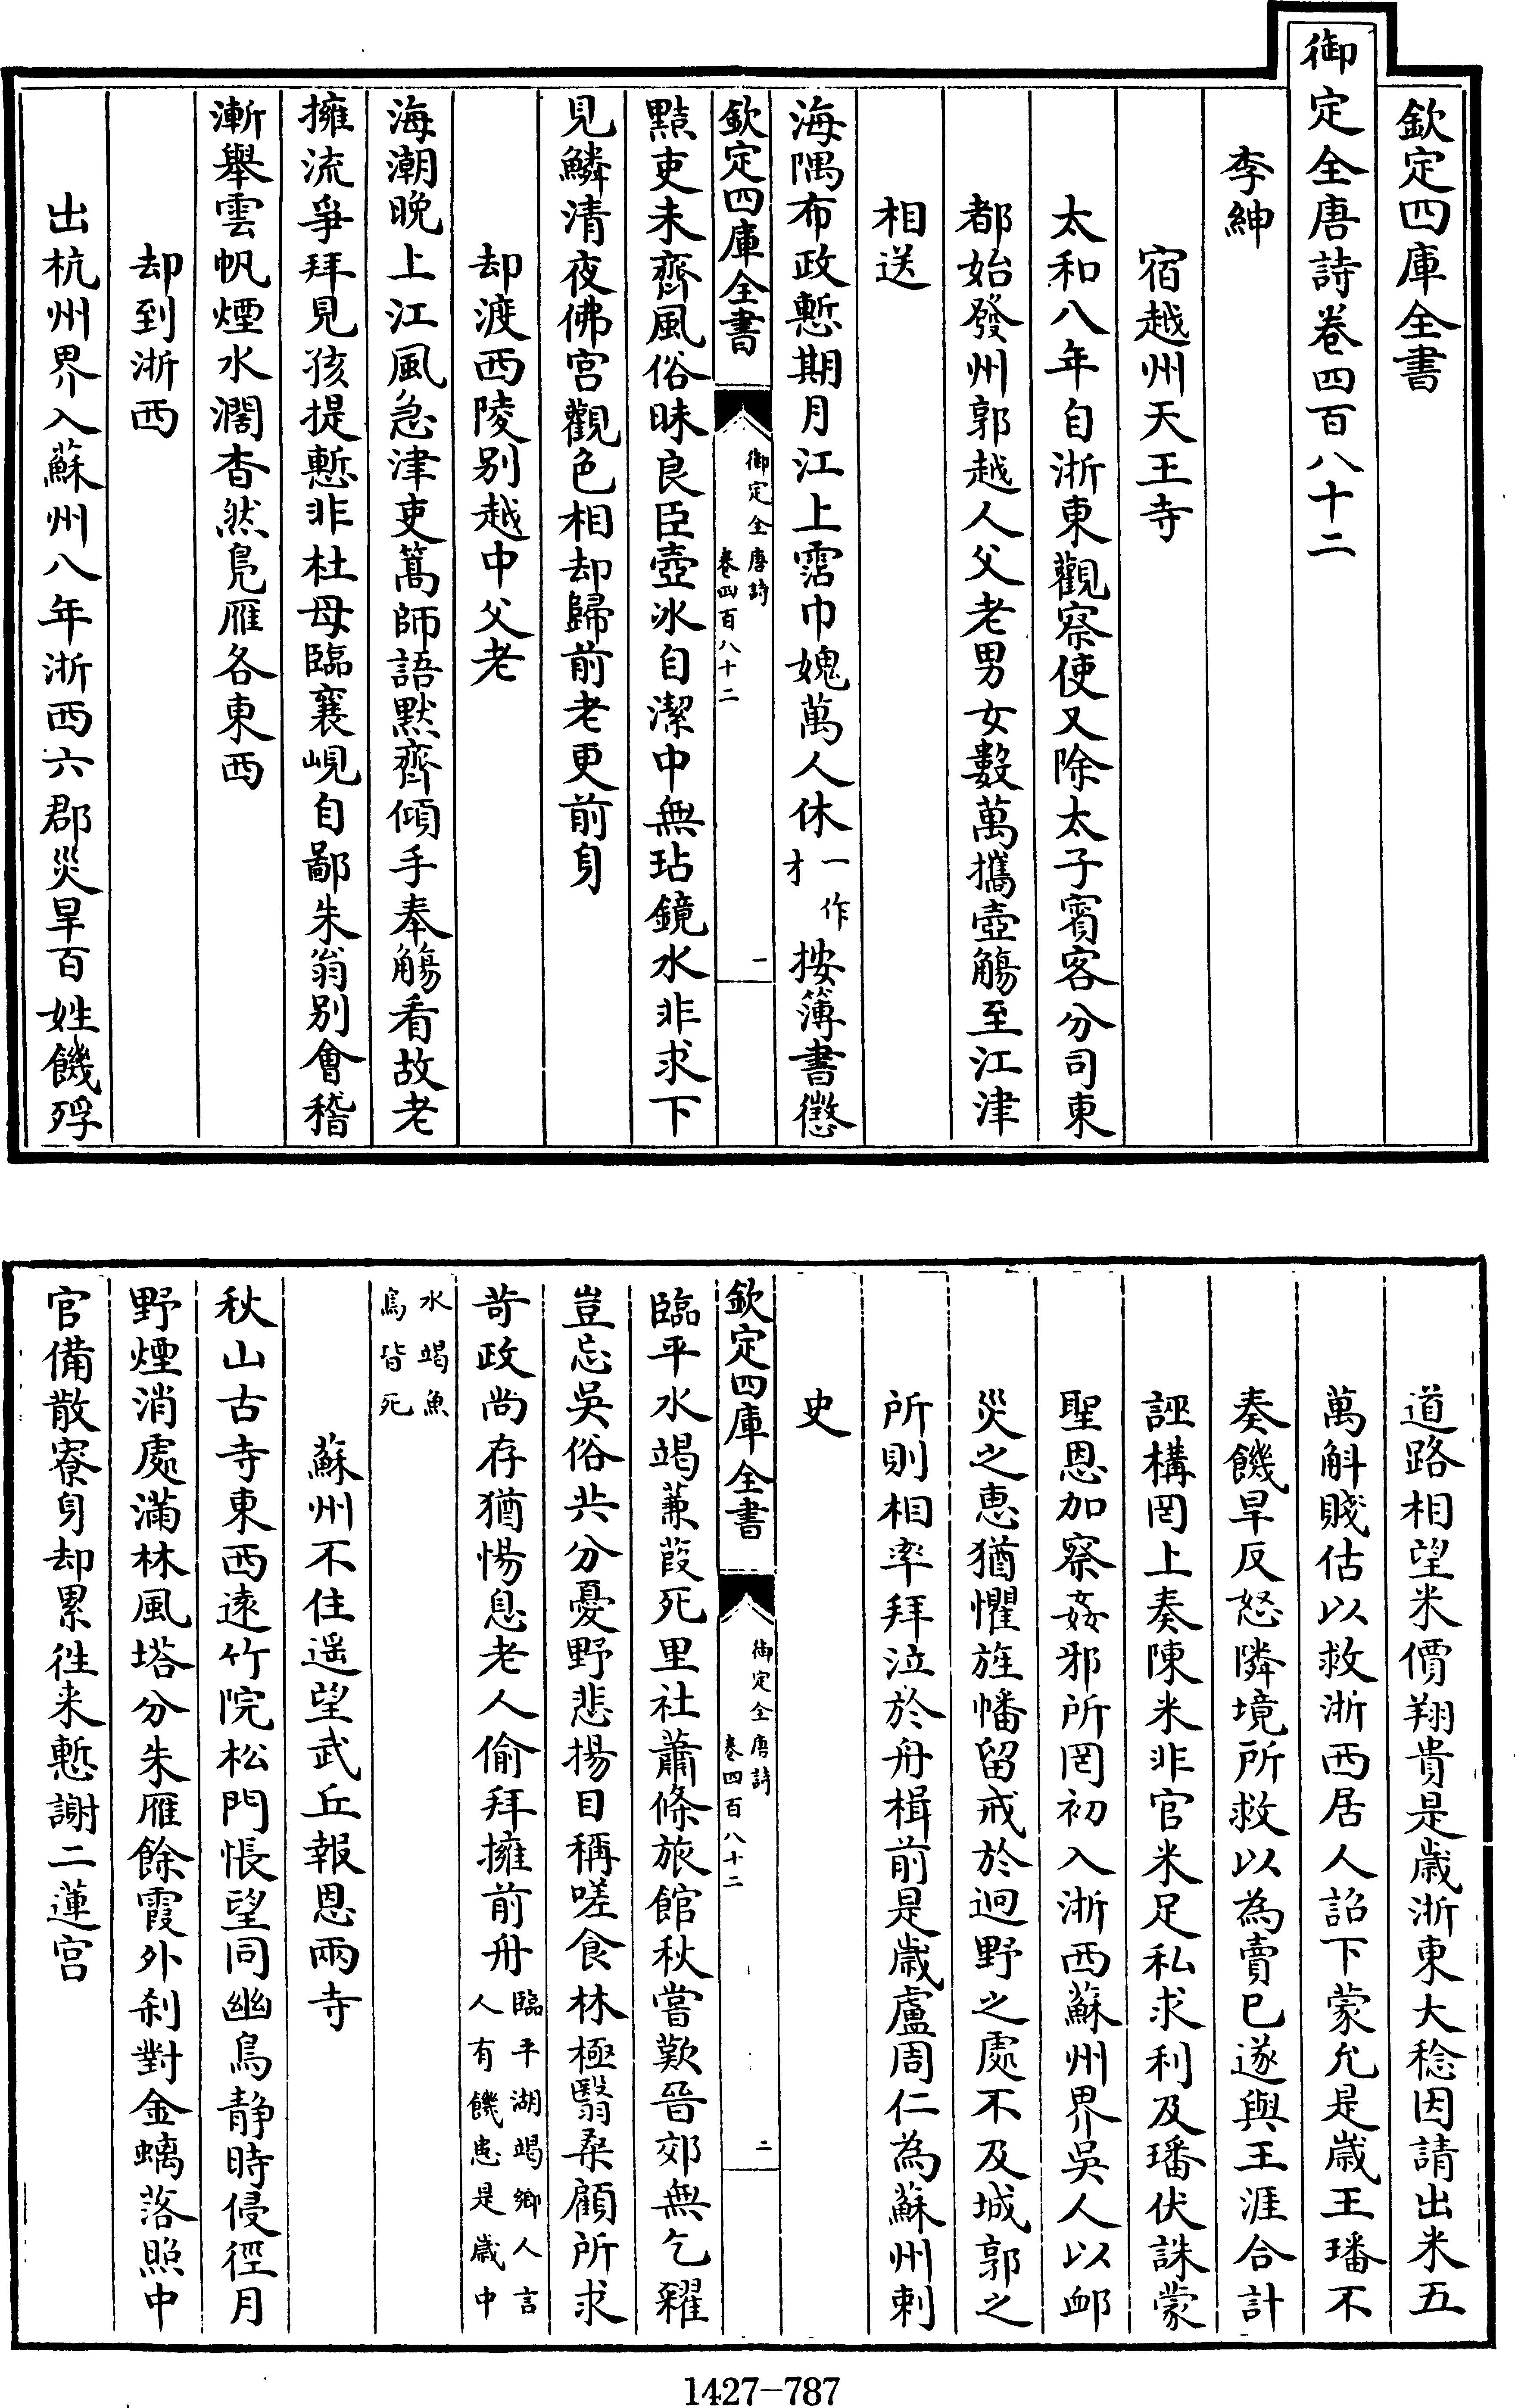 欽定四庫全書
御定全唐詩卷四百八十二
李紳
宿越州天王寺
太和八年自浙東觀察使又除太子賓客分司東
都始發州郭越人父老男女數萬攜壺觴至江津
相送
海隅布政慙期月江上霑巾媿萬人休一作才按簿書懲
欽定四庫全書
御定全唐詩
卷四百八十二
一
黠吏未齊風俗昧良臣壺冰自潔中無玷鏡水非求下
見鱗清夜佛宮觀色相却歸前老更前身
却渡西陵别越中父老
海潮晚上江風急津吏篙師語默齊傾手奉觴看故老
擁流爭拜見孩提慙非杜母臨襄峴自鄙朱翁别會稽
漸舉雲帆煙水濶杳然鳧雁各東西
却到浙西
出杭州界入蘇州八年浙西六郡災旱百姓饑殍
道路相望米價翔貴是歲浙東大稔因請出米五
萬斛賤估以救浙西居人詔下蒙允是歲王璠不
奏饑旱反怒隣境所救以為賣已遂與王涯合計
誣構罔上奏陳米非官米足私求利及璠伏誅蒙
聖恩加察姦邪所罔初入浙西蘇州界吳人以卹
災之惠猶懼旌幡留戒於迥野之處不及城郭之
所則相率拜泣於舟楫前是歲盧周仁為蘇州刺
史
欽定四庫全書
御定全唐詩
卷四百八十二
二
臨平水竭蒹葭死里社蕭條旅館秋嘗歎晉郊無乞糴
豈忘吳俗共分憂野悲揚目稱嗟食林極翳桑顧所求
苛政尚存猶惕息老人偷拜擁前舟臨平湖竭鄉人言人有饑患是歲中
水竭魚鳥皆死
蘇州不住遥望武丘報恩兩寺
秋山古寺東西遠竹院松門悵望同幽鳥静時侵徑月
野煙消處滿林風塔分朱雁餘霞外刹對金螭落照中
官備散寮身却累徃来慙謝二蓮宮
1427-787